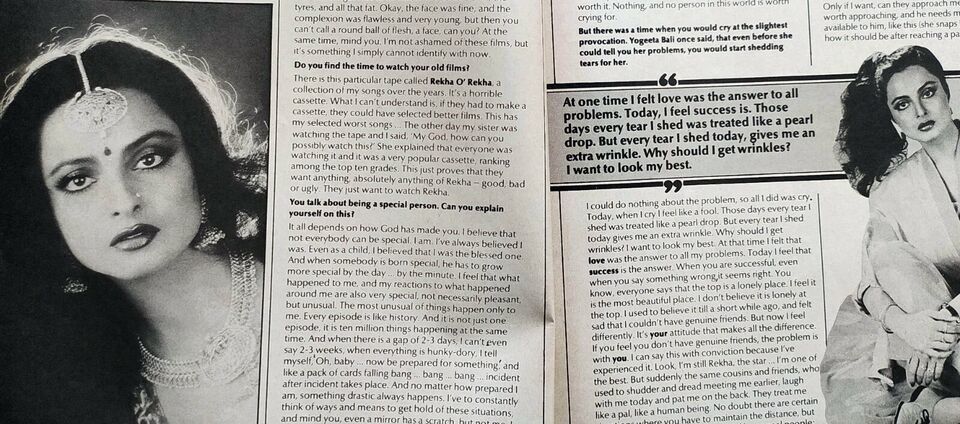 tyres, and all that fat. Okay, the face was fine, and the
complexion was flawless and very young, but then you
can't call a round ball of flesh, a face, can you? At the
same time, mind you, I'm not ashamed of these films, but
it's something I simply cannot identify with now.
Do you find the time to watch your old films?
There is this particular tape called Rekha O' Rekha, a
collection of my songs over the years. It's a horrible
cassette. What I can't understand is, if they had to make a
cassette, they could have selected better films. This has
my selected worst songs ... The other day my sister was
watching the tape and I said, 'My God, how can you
possibly watch this!' She explained that everyone was
watching it and it was a very popular cassette, ranking
among the top ten grades. This just proves that they
want anything, absolutely anything of Rekha — good, bad
or ugly. They just want to watch Rekha.
You talk about being a special person. Can you explain
yourself on this?
It all depends on how God has made you. I believe that
not everybody can be special. I am. I've always believed I
was. Even as a child, I believed that I was the blessed one.
And when somebody is born special, he has to grow
more special by the day ... by the minute. I feel that what
happened to me, and my reactions to what happened
around me are also very special, not necessarily pleasant,
but unusual. The most unusual of things happen only to
me. Every episode is like history. And it is not just one
episode, it is ten million things happening at the same
time. And when there is a gap of 2-3 days, I can't even
say 2-3 weeks, when everything is hunky-dory, I tell
myself, 'Oh, baby ... now be prepared for something', and
like a pack of cards falling bang ... bang ... bang ... incident
after incident takes place. And no matter how prepared I
am, something drastic always happens. I've to constantly
think of ways and means to get hold of these situations,
and mind you, even a mirror has a scratch, but not me. I
worth it. Nothing, and no person in this world is worth
crying for.
But there was a time when you would cry at the slightest
provocation. Yogeeta Bali once said, that even before she
could tell you her problems, you would start shedding
tears for her.
“
At one time I felt love was the answer to all
problems. Today, I feel success is. Those
days every tear I shed was treated like a pearl
drop. But every tear I shed today, gives me an
extra wrinkle. Why should I get wrinkles?
I want to look my best.
”
I could do nothing about the problem, so all I did was cry.
Today, when I cry I feel like a fool. Those days every tear I
shed was treated like a pearl drop. But every tear I shed
today gives me an extra wrinkle. Why should I get
wrinkles? I want to look my best. At that time I felt that
love was the answer to all my problems. Today I feel that
success is the answer. When you are successful, even
when you say something wrong, it seems right. You
know, everyone says that the top is a lonely place. I feel it
is the most beautiful place. I don't believe it is lonely at
the top. I used to believe it till a short while ago, and felt
sad that I couldn't have genuine friends. But now I feel
differently. It's your attitude that makes all the difference.
If you feel you don't have genuine friends, the problem is
with you. I can say this with conviction because I've
experienced it. Look, I'm still Rekha, the star ... I'm one of
the best. But suddenly the same cousins and friends, who
used to shudder and dread meeting me earlier, laugh
with me today and pat me on the back. They treat me
like a pal, like a human being. No doubt there are certain
where you have to maintain the distance, but
Only if I want, can they approach me
worth approaching, and he needs m
available to him, like this (she snaps
how it should be after reaching a pa